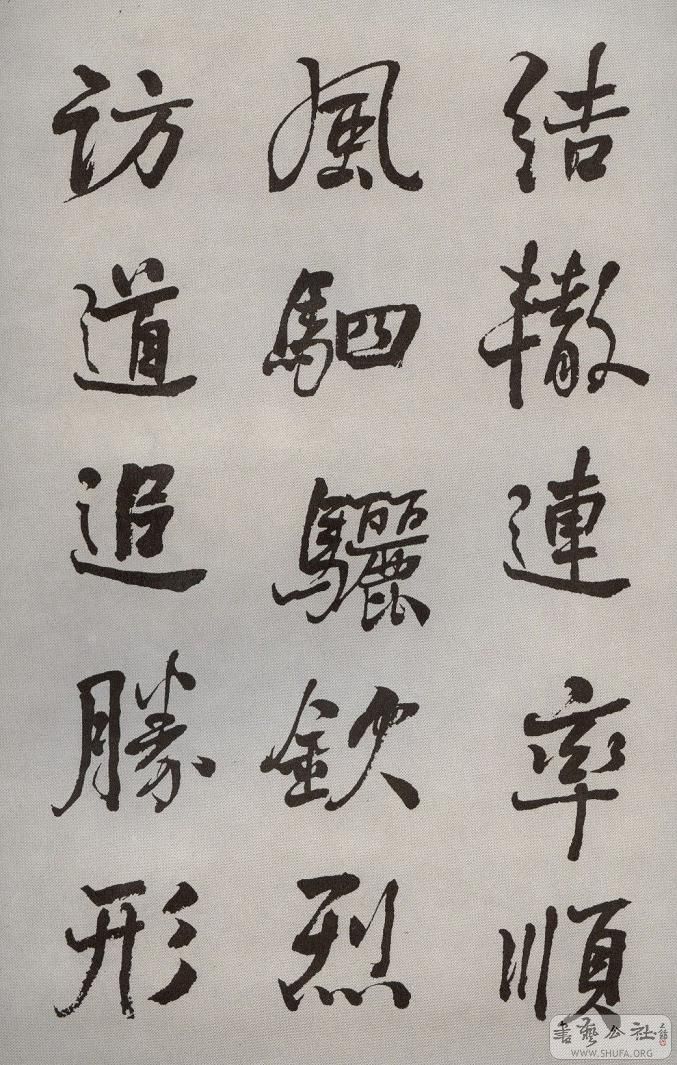 結轍連率順
風駟驪欽烈
訪道追勝形
書藝公社
WWW.SHUFA.ORG